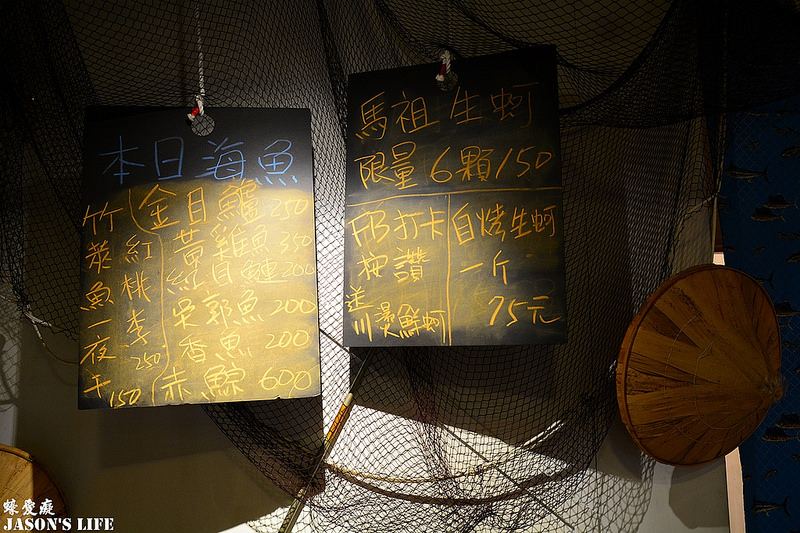 本日海魚
金目鱸 250
黃雞魚 350
紅目鰱 200
吳郭魚 200
香魚 200
赤鯮 600
紅桃李 250
竹莢魚一夜干 150
馬祖生蚵
限量6顆/150
FB打卡
按讚
送
川燙鮮蚵
自烤生蚵
一斤
75元
蝶愛癡
JASON'S LIFE